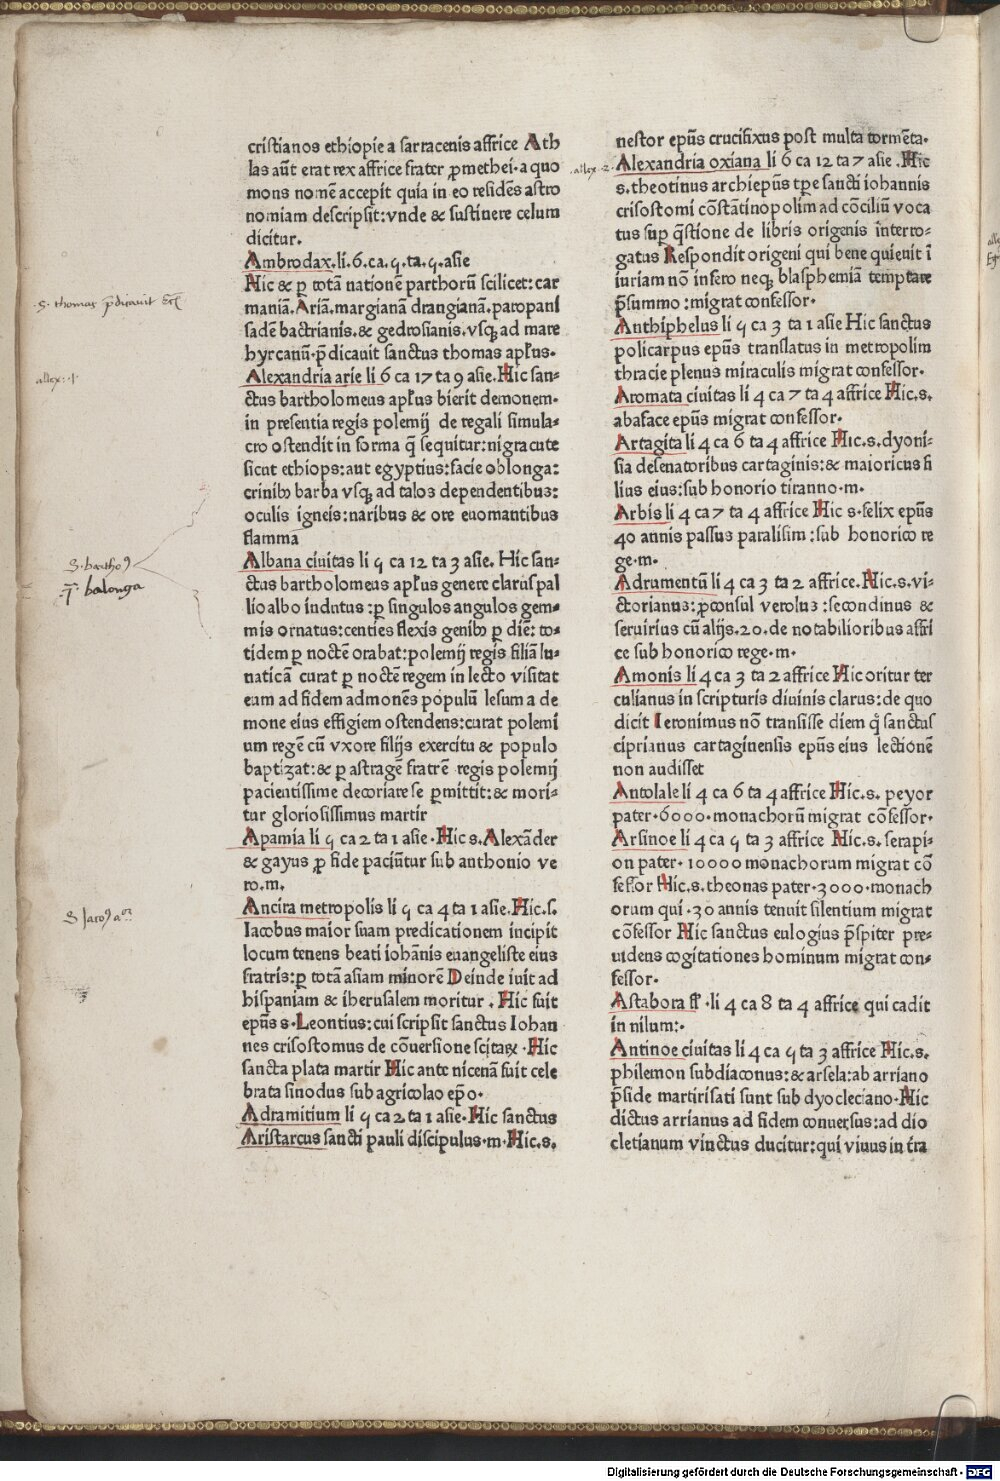 cristianos ethiopie a sarracenis affrice Ath
las aūt erat rex affrice frater ꝓmethei·a quo
mons nomē accepit quia in eo residēs astro
nomiam descripsit:vnde & sustinere celum
dicitur.
Ambrodax.li.6.ca.q.ta.q.asie
Hic & ꝑ totā nationē parthorū scilicet:car
maniā.Ariā.margianā drangianā.paropani
sadē bactrianis.& gedrosianis.vsqꝫ ad mare
hyrcanū·p̄dicauit sanctus thomas apl̄us.
Alexandria arie li 6 ca 17 ta 9 asie.Hic san⸗
ctus bartholomeus apl̄us bierit demonem·
in presentia regis polemij de regali simula⸗
cro ostendit in forma q̄ sequitur:nigra cute
sicut ethiops:aut egyptius:facie oblonga:
crinibꝫ barba vsqꝫ ad talos dependentibuꝫ:
oculis igneis:naribus & ore euomantibus
flamma
Albana ciuitas li q ca 12 ta 3 asie. Hic san⸗
ctus bartholomeus apl̄us genere clarus pal
lio albo indutus :ꝑ singulos angulos gem⸗
mis ornatus:centies flexis genibꝫ ꝑ diē: to⸗
tidem ꝑ noctē orabat:polemij regis filiā lu⸗
naticā curat ꝑ noctē regem in lecto visitat
eum ad fidem admonēs populū lesum a de
mone eius effigiem ostendens:curat polemi
um regē cū vxore filijs exercitu & populo
baptizat:& ꝑ astragē fratrē regis polemij
pacientissime decoriare se ꝑmittit:& mori⸗
tur gloriosissimus martir
Apamia li q ca 2 ta 1 asie·Hic s.Alexāder
& gayus ꝓ fide paciūtur sub anthonio ve
ro.m.
Ancira metropolis li q ca 4 ta 1 asie.Hic.s.
Iacobus maior suam predicationem incipit
locum tenens beati iohānis euangeliste eius
fratris:ꝑ totā asiam minorē Deinde iuit ad
hispaniam & iherusalem moritur . Hic fuit
ep̄us s·Leontius:cui scripsit sanctus Iohan
nes crisostomus de cōuersione scitaꝝ ·Hic
sancta plata martir Hic ante nicenā fuit cele
brata sinodus sub agricolao ep̄o·
Adramitium li q ca 2 ta 1 asie·Hic sanctus
Aristarcus sancti pauli discipulus·m·Hic.s.
S. thomas p̄dicauit
allex: ·1·
S. bartho
balonga
S Jaco
nestor ep̄us crucifixus post multa tormēta·
allex · 2·
Alexandria oxiana li 6 ca 12 ta 7 asie .Hic
s.theotinus archiep̄us tp̄e sancti iohannis
crisostomi cōstātinopolim ad cōciliū voca
tus suꝑ q̄stione de libris origenis interro⸗
gatus Respondit origeni qui bene quieuit ī
iuriam nō infero neqꝫ blasphemiā temptare
p̄summo :migrat confessor·
Anthiphelus li q ca 3 ta 1 asie Hic sanctus
policarpus ep̄us translatus in metropolim
thracie plenus miraculis migrat confessor·
Aromata ciuitas li 4 ca 7 ta 4 affrice Hic.s.
abaface ep̄us migrat confessor·
Artagita li 4 ca 6 ta 4 affrice Hic.s.dyoni⸗
sia desenatoribus cartaginis:& maioricus fi
lius eius:sub honorio tiranno·m·
Arbis li 4 ca 7 ta 4 affrice Hic s·felix ep̄us
40 annis passus paralisim :sub honorico re
ge·m·
Adrumentū li 4 ca 3 ta 2 affrice.Hic.s.vi⸗
ctorianuꝫ:ꝓconsul veroluꝫ :secondinus &
seruirius cū alijs.20.de notabilioribus affri
ce sub honorico rege·m·
Amonis li 4 ca 3 ta 2 affrice Hic oritur ter
culianus in scripturis diuinis clarus:de quo
dicit Ieronimus nō transisse diem q̄ sanctus
ciprianus cartaginensis ep̄us eius lectionē
non audisset
Antolale li 4 ca 6 ta 4 affrice Hic.s. peyor
pater·6000·monachorū migrat cōfessor·
Arsinoe li 4 ca q ta 3 affrice Hic.s. serapi⸗
on pater· 10000 monachorum migrat cō
fessor Hic.s.theonas pater·3000·monach
orum qui ·30 annis tenuit silentium migrat
cōfessor Hic sanctus eulogius p̄spiter pre⸗
uidens cogitationes hominum migrat con⸗
fessor·
Astabora fl̄ ·li 4 ca 8 ta 4 affrice qui cadit
in nilum:·
Antinoe ciuitas li 4 ca q ta 3 affrice Hic.s.
philemon subdiaconus:& arsela:ab arriano
p̄side martirisati sunt sub dyocleciano·Hic
dictus arrianus ad fidem conuersus:ad dio
cletianum vinctus ducitur:qui viuus in tr̄a
Digitalisierung gefördert durch die Deutsche Forschungsgemeinschaft - DFG